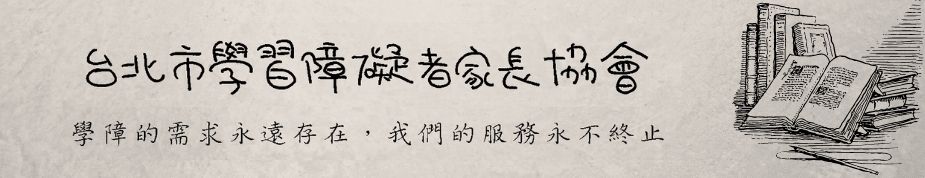 台北市學習障礙者家長協會
學障的需求永遠存在，我們的服務永不終止